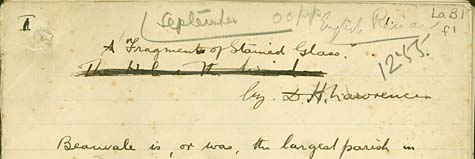 1
September
English Review
La B1
f1
A "Fragment of Stained Glass."
1245.
by D. H. Lawrence
Beauvale is, or was, the largest parish in